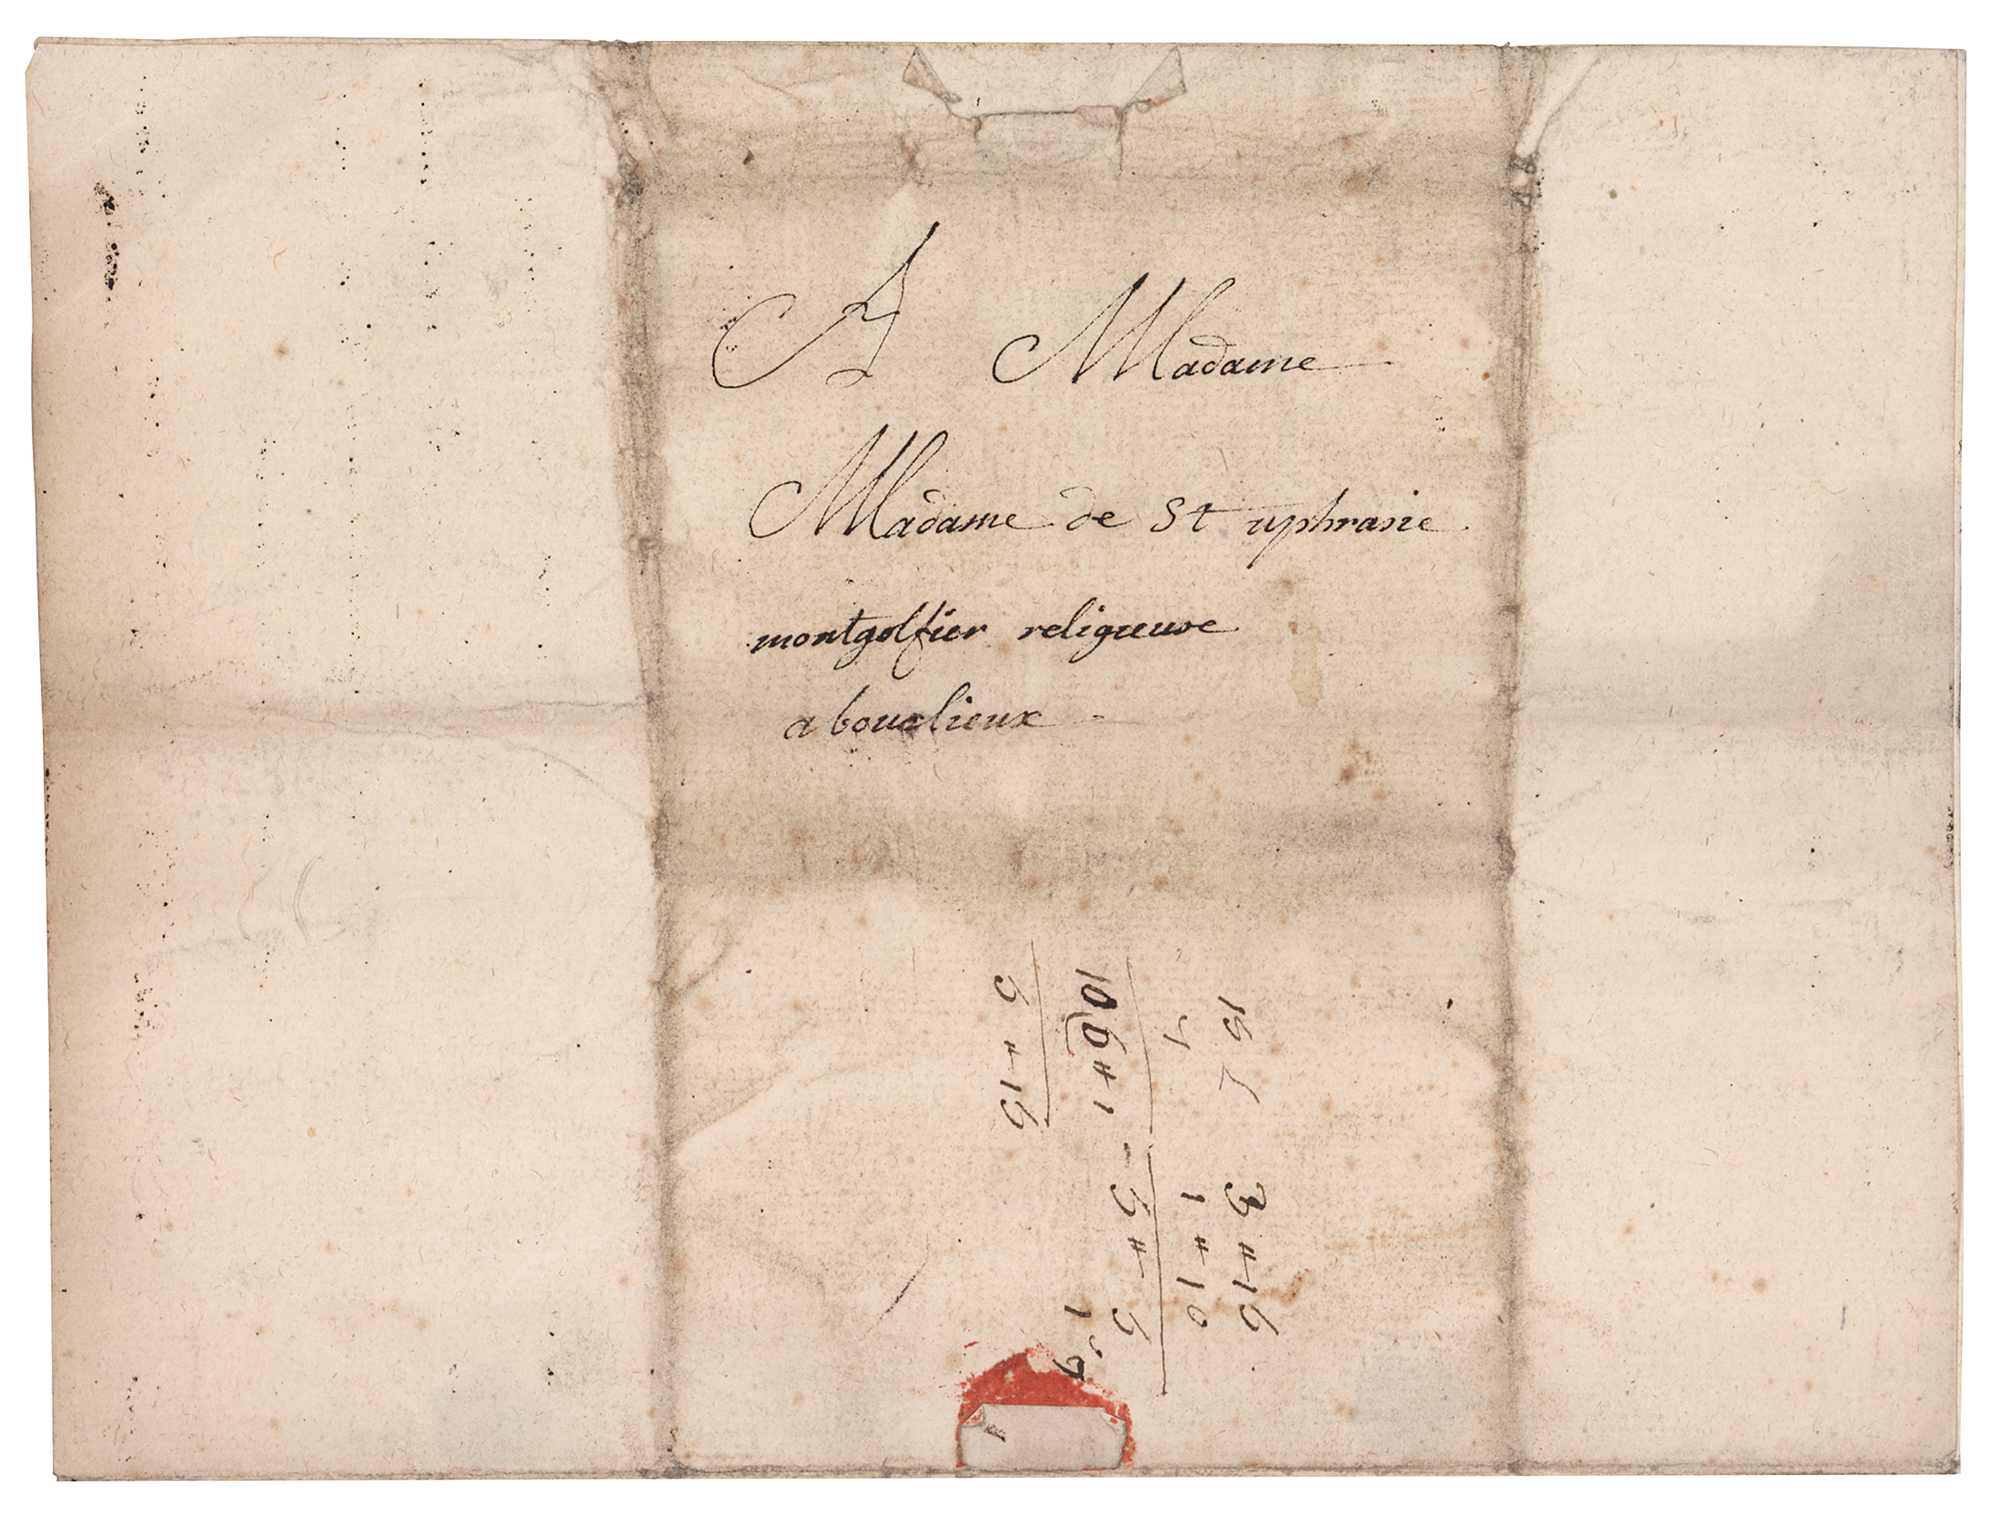 A Madame
Madame de St uphrasie
montgolfier religieuse
a bouclieux
15
3 # 16
1 # 10
5 # 6
6 # 16